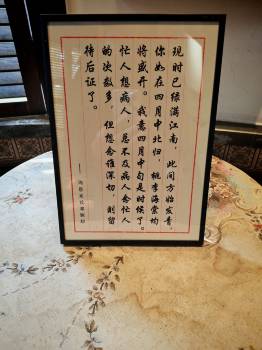 现时已绿满江南，此间方始发青。
你如在四月中北归，桃李海棠均
将盛开。我意四月中旬是时候了。
忙人想病人，总不及病人念忙人
的次数多，但想念谁深切，则留
待后证了。